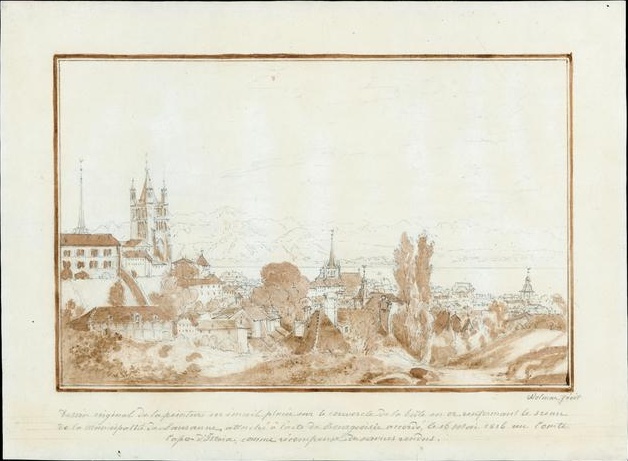 Wolmar fecit
Dessin original de la peinture en émail placée sur le couvercle de la boîte en or renfermant le sceau
de la Municipalité de Lausanne, attaché à l'acte de Bourgeoisie accordé le 16 Mai 1816 au Comte
Capo d'Istria, comme récompense de services rendus.